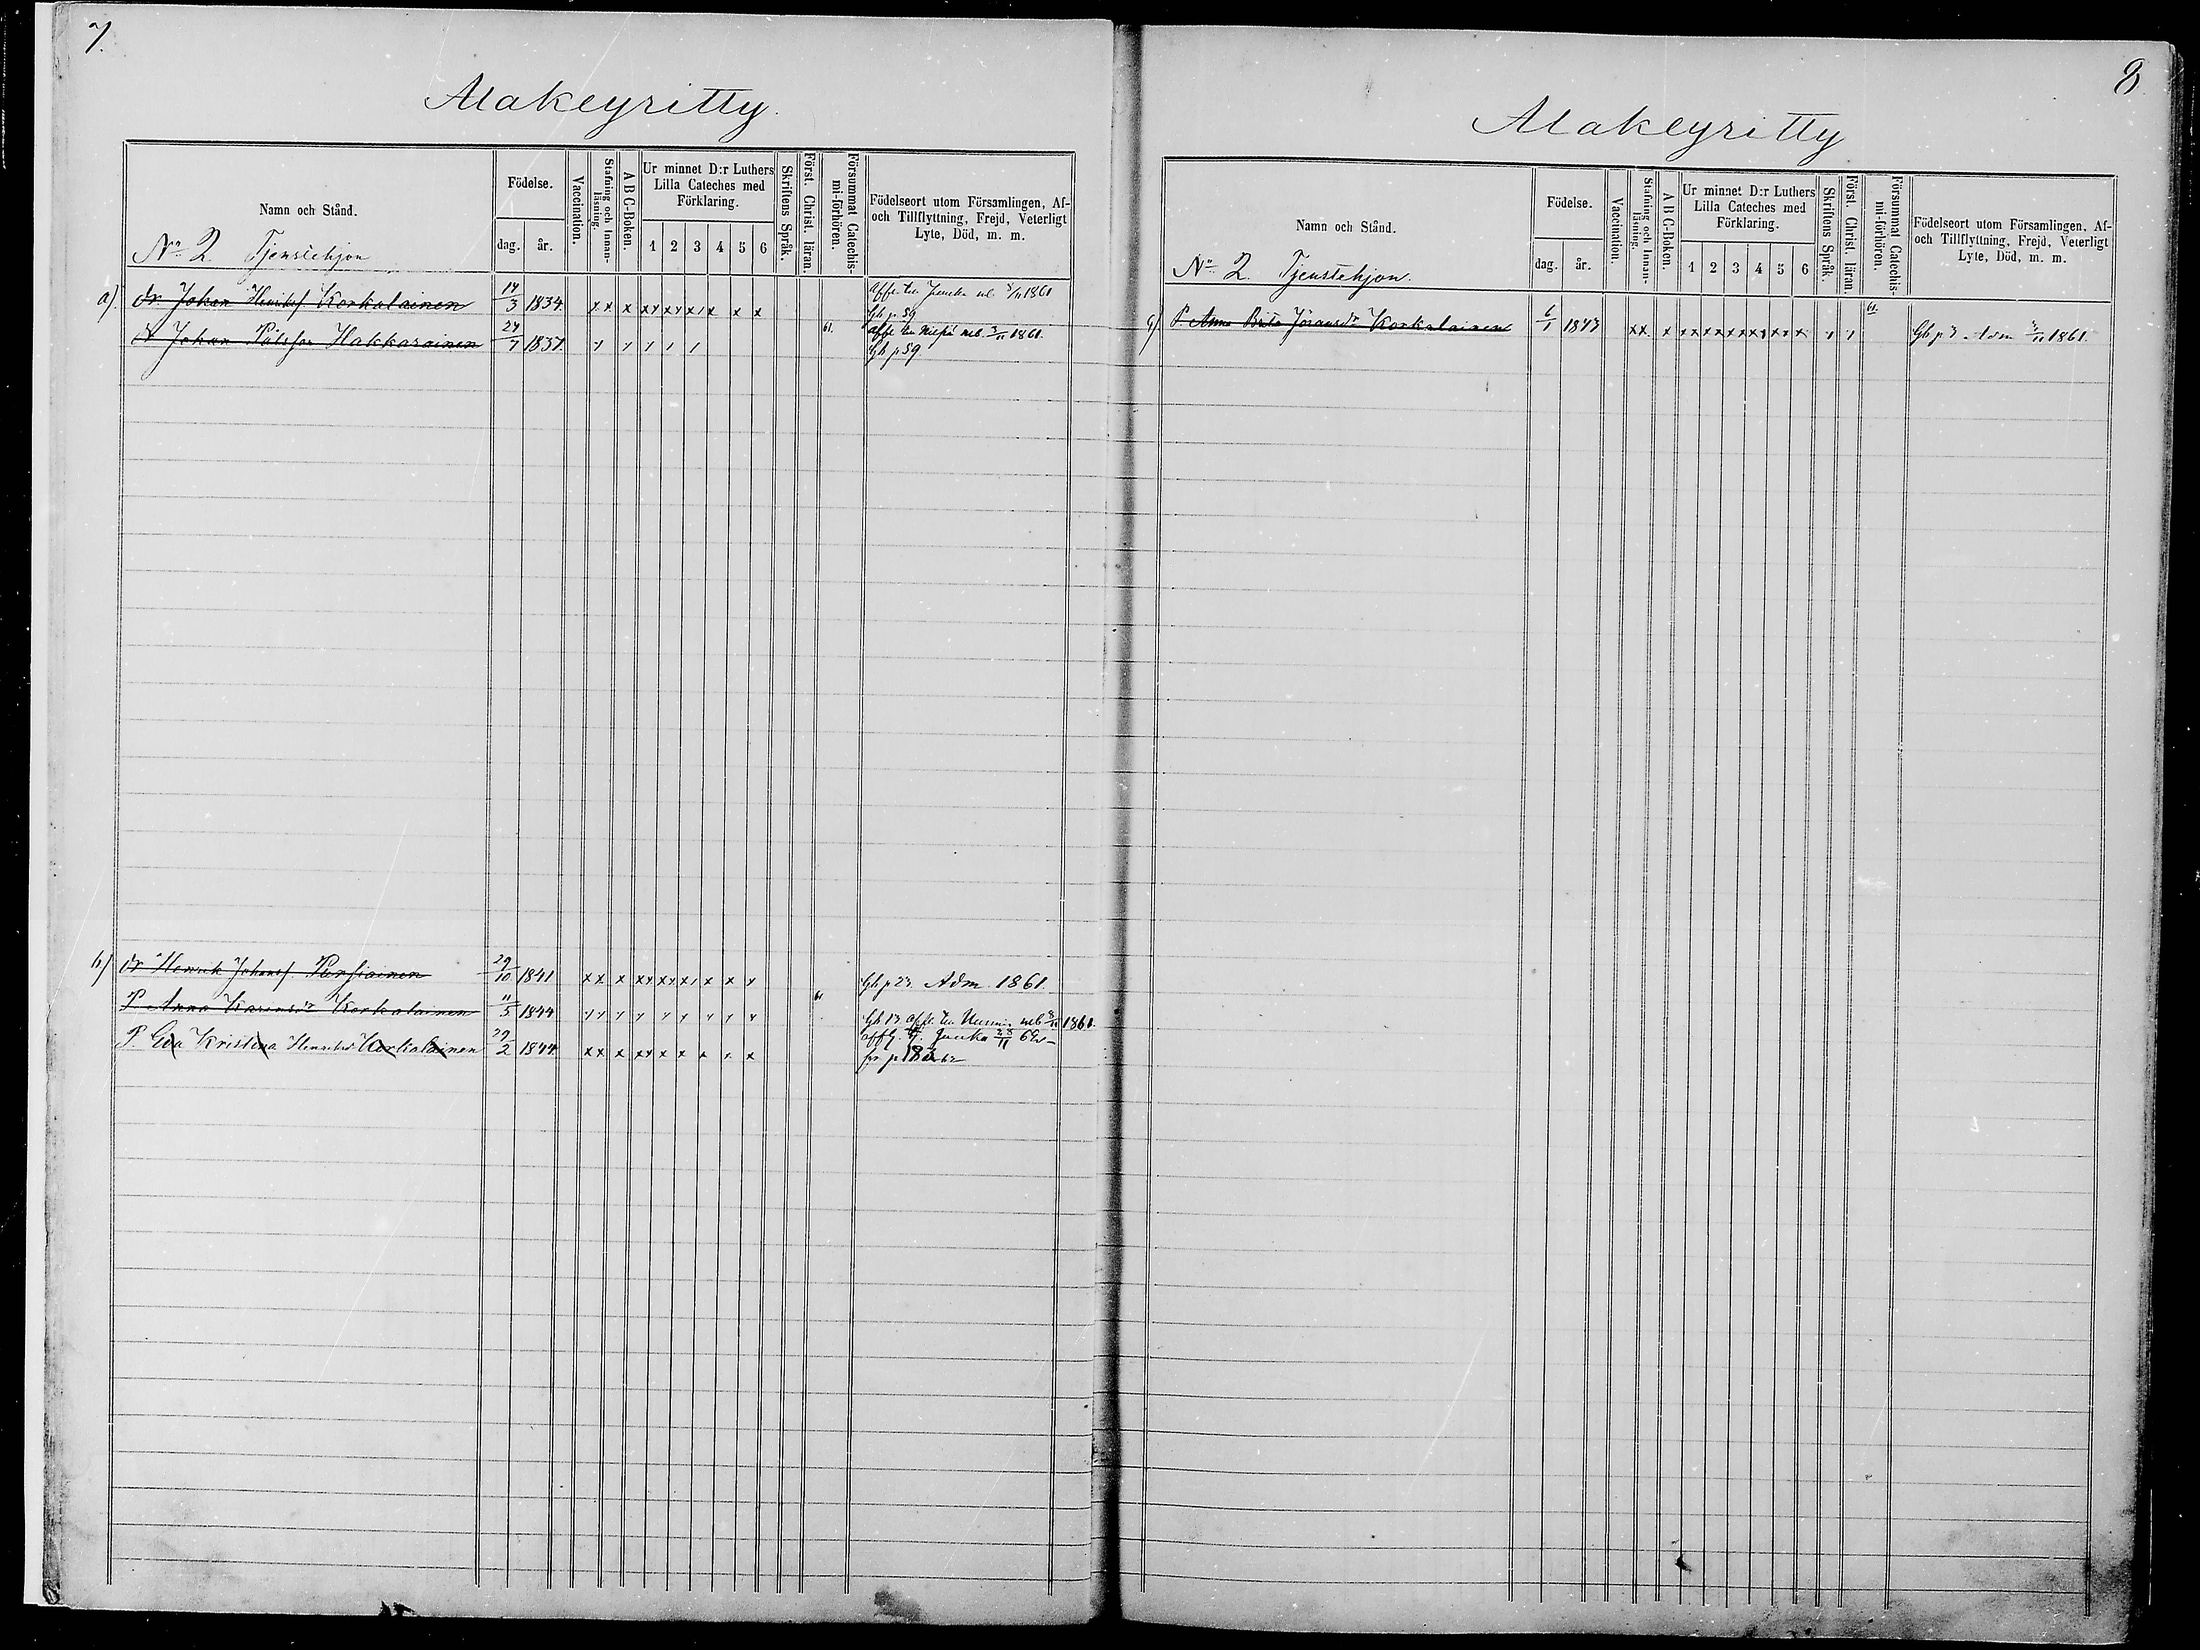 7.
Alakeyritty.
Namn och Stånd.
Födelse.
dag. år.
Vaccination.
Stafning och Innanläsning.
A B C-Boken.
Ur minnet D:r Luthers
Lilla Cateches med
Förklaring.
1 2 3 4 5 6
Skriftens Språk.
Först. Christ. läran.
Försummat Catechismi-förhören.
Födelseort utom Församlingen, Af-
och Tillflyttning, Frejd, Veterligt
Lyte, Död, m. m.
No 2. Tjenstehjon
a) Dr. Johan Henriks. Korkalainen 14/3 1834. x x x xx xx x x x x
1861
Gb p. 59
Dr Johan Pålsson Hakkarainen 24/7 1837. 61. 1861.
Gb p 59
b) Dr Henrik Johans. 29/10 1841 xx x xx xx x x x x Gb p 23 Adm. 1861.
P Anna Korkalainen 11/5 1844 61 1861.
P Eva Kristina Henriksd Korkalainen 29/2 1844 xx x xx x x x x x
8.
Alakeyritty
Namn och Stånd.
Födelse.
dag. år.
Vaccination.
Stafning och Innanläsning.
A B C-Boken.
Ur minnet D:r Luthers
Lilla Cateches med
Förklaring.
1 2 3 4 5 6
Skriftens Språk.
Först. Christ. läran.
Försummat Catechismi-förhören.
Födelseort utom Församlingen, Af-
och Tillflyttning, Frejd, Veterligt
Lyte, Död, m. m.
No 2. Tjenstehjon.
P Anna Brita Göransdr Korkalainen 6/1 1843 xx x xx xx xx xx x x 61. Gb p 3 Adm 1861.